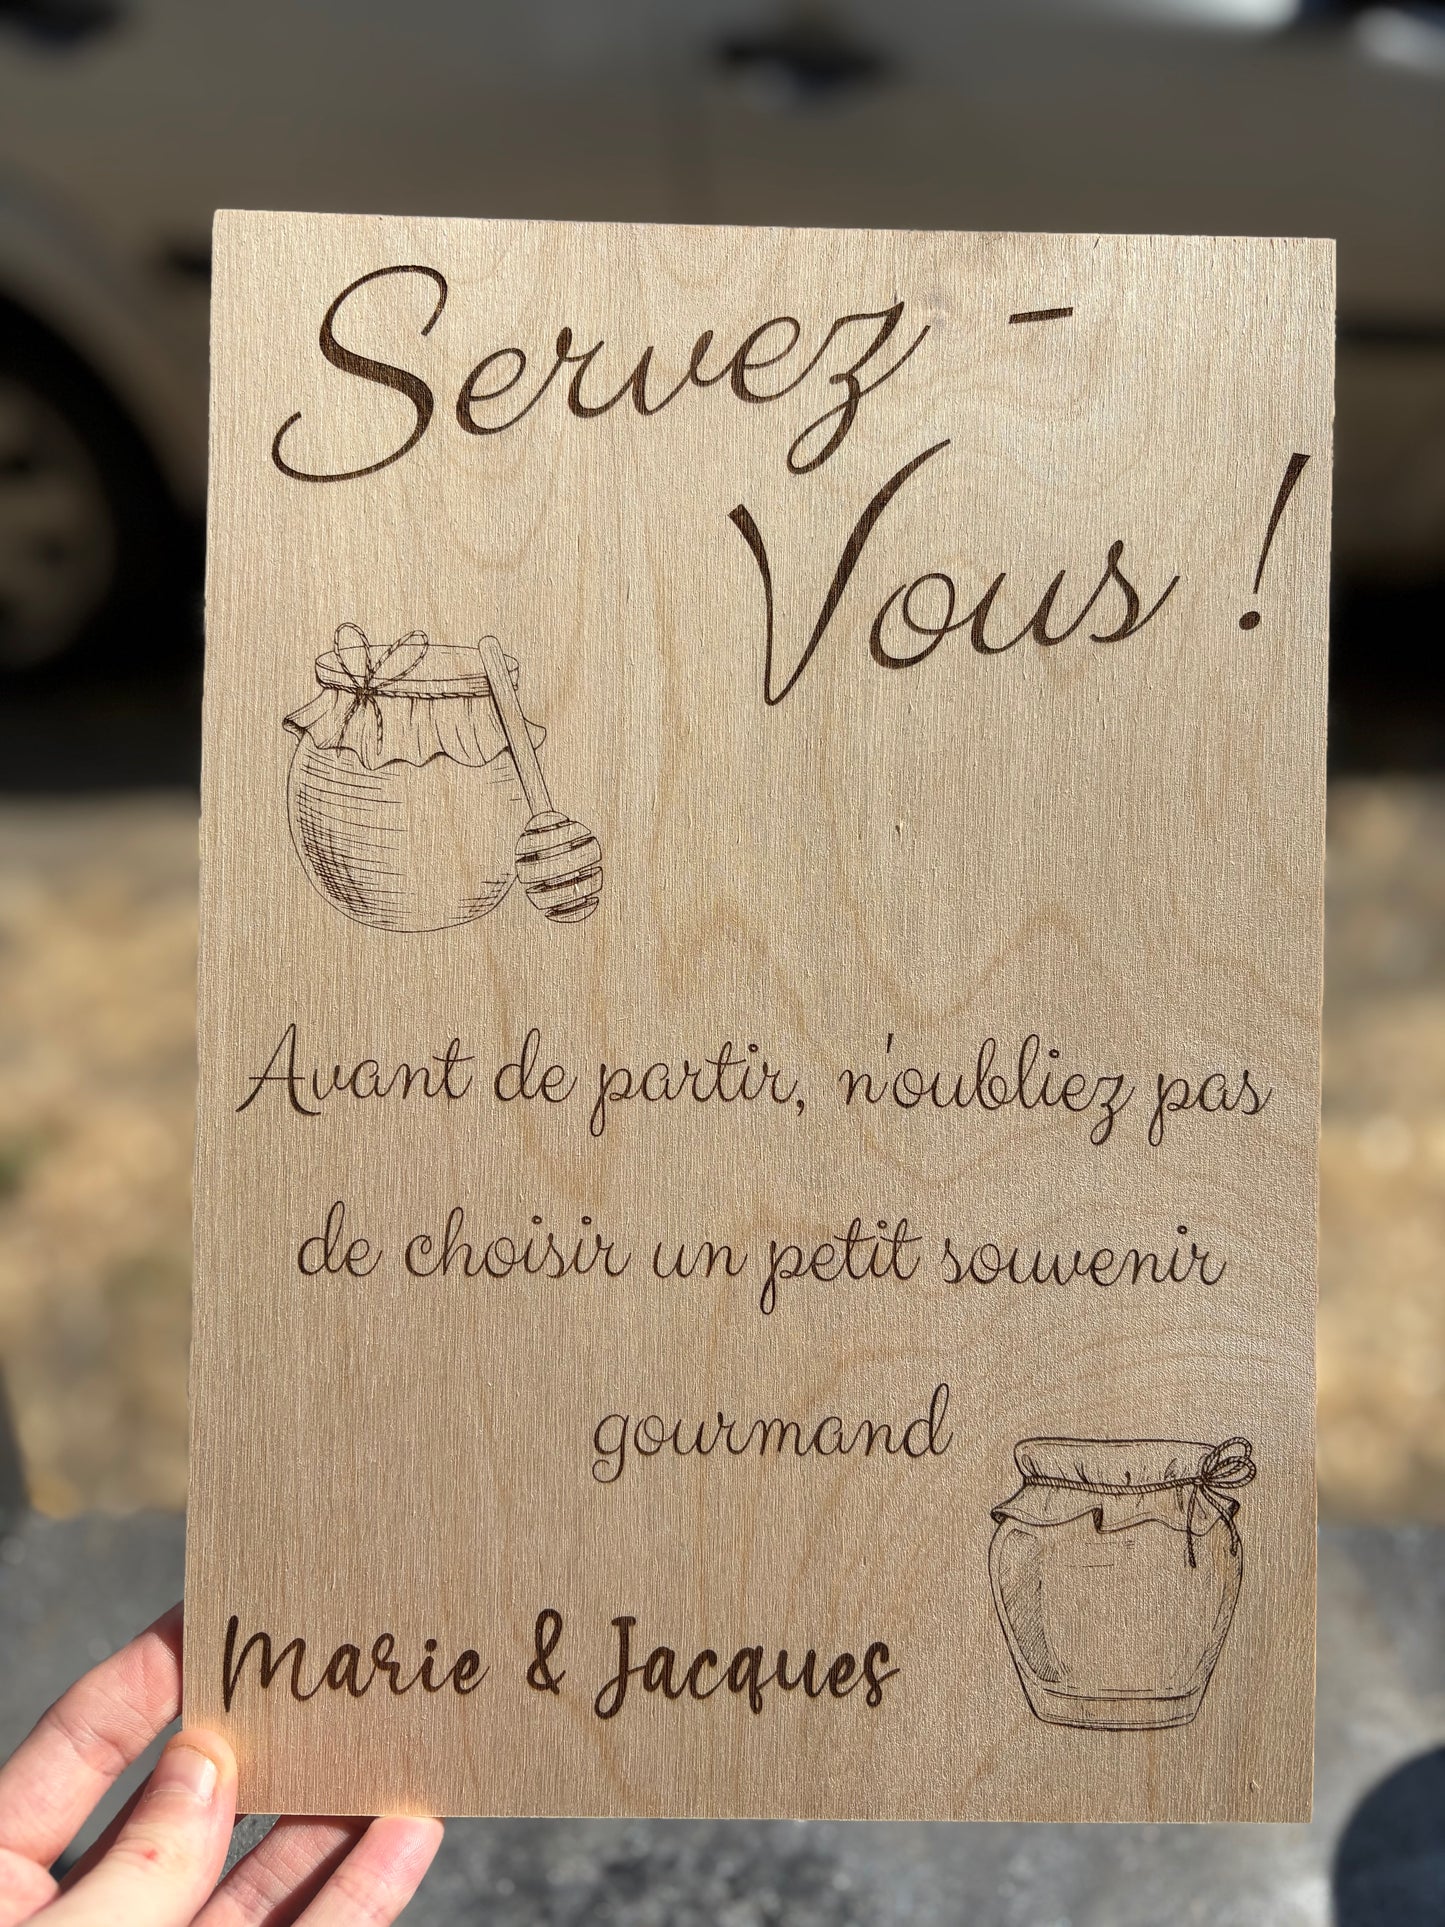 Servez -
Vous !
Avant de partir, n'oubliez pas
de choisir un petit souvenir
gourmand
Marie & Jacques